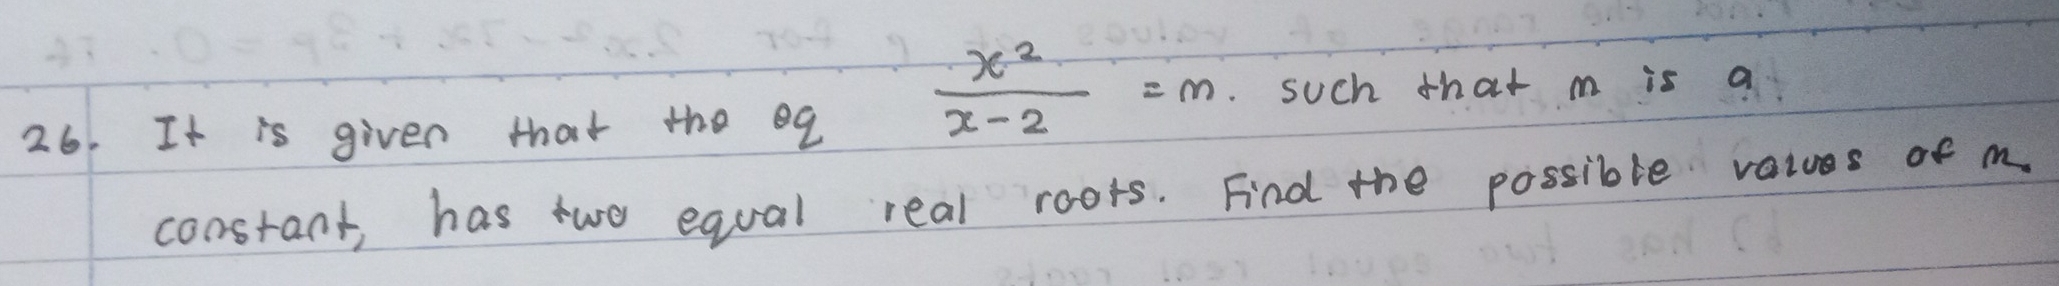 26. It is given that the eq x²/(x-2) = m. such that m is a
constant, has two equal real roots. Find the possible values of m.